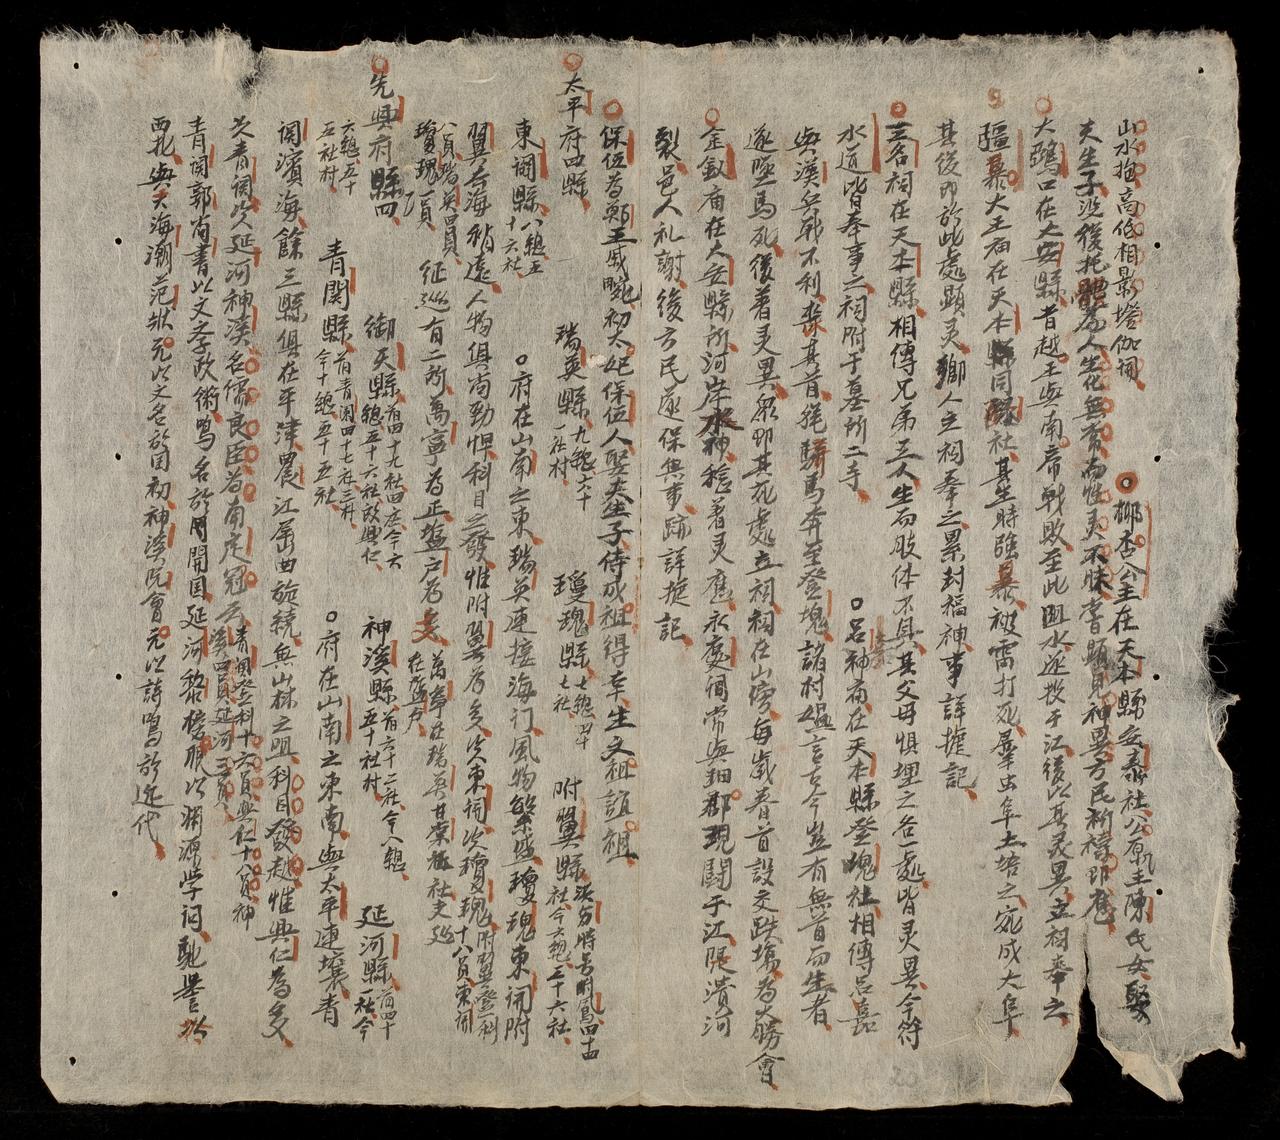 山水抱高低相影塔伽祠 柳杏公主在天本縣安泰社公原主陳氏女娶
夫生子沒後托體為人生化無常而性灵不昧常顕見神異方民祈禱即應
大鵶口在大安縣昔越王與南帝戰敗至此阻水遂投于江後以其灵異立祠奉之
彊暴大王祠在天本縣同隊社其生時強暴被雷打死羣虫阜土培之宛成大阜
其後即於此處顕灵鄉人立祠奉之累封福神事詳摭記
三名祠在天本縣相傳兄弟三人生而肢体不具其父母惧埋之各一處皆灵異今符
水道皆奉事之祠附于墓所二寺 呂神庙在天本縣登塊社相傳呂嘉
與漢兵戰不利棄其首騎馬奔至登塊諸村媼言古今豈有無首而生者
遂墜馬死後著灵異衆即其死處立祠祠在山傍每歲春首設交跌塲為大勝會
金釵庙在大安縣所河岸水神稔著灵應永慶間常與細郡現鬪于江隄潰河
裂邑人礼謝後方民遂保與事跡詳摭記
保伍為鄭王戚畹初太妃保伍人娶夫生子侍成祖得幸生文祖誼祖
太平府四縣
東關縣八總五十六社 瑞英縣九總六十一社村 瓊瑰縣七總四十七社 附翼縣洪
府在山南之東瑞英連接海汀風物繁盛瓊瑰東関附
翼去海稍遠人物俱尚勁悍科目之發惟附翼為多次東関次瓊瑰附翼登科十八員東関
八員瑞英四員瓊瑰一員 征巡有二所萬寧為正塩户為支萬寧在瑞英甘棠社支巡在塩户
先興府縣四 御天縣前四十九社四庄今六總五十六社 神溪縣前六十二社今八總五十社村 延河縣前四十一社今
六總五十五社村 青関縣前青関四十七社三村今十總五十五社 府在山南之東南與太平連壤青
関濱海餘三縣俱在平津農江屈曲旋繞無山林之咀科目發越惟興仁為多
次青関次延河神溪名儒良臣為南定冠云青関登科十六員興仁十八員神溪四員延河三員
青関郭尚書以文字政術鳴名於開国延河黎榜眼以渊源学问馳誉於
西北與大海潮范狀元以文名於国初神溪阮會元以詩鳴於近代